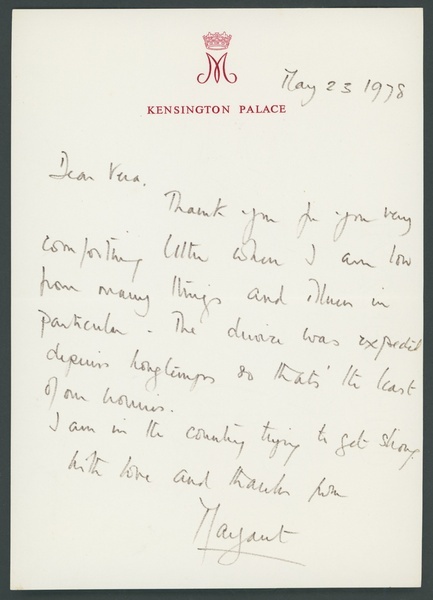 M
May 23 1978
KENSINGTON PALACE
Dear Vera,
Thank you for your very
comforting letter when I am low
from many things and illness in
particular - The divorce was expected
depuis longtemps so thats' the least
of our worries.
I am in the country trying to get strong
With love and thanks from
Margaret